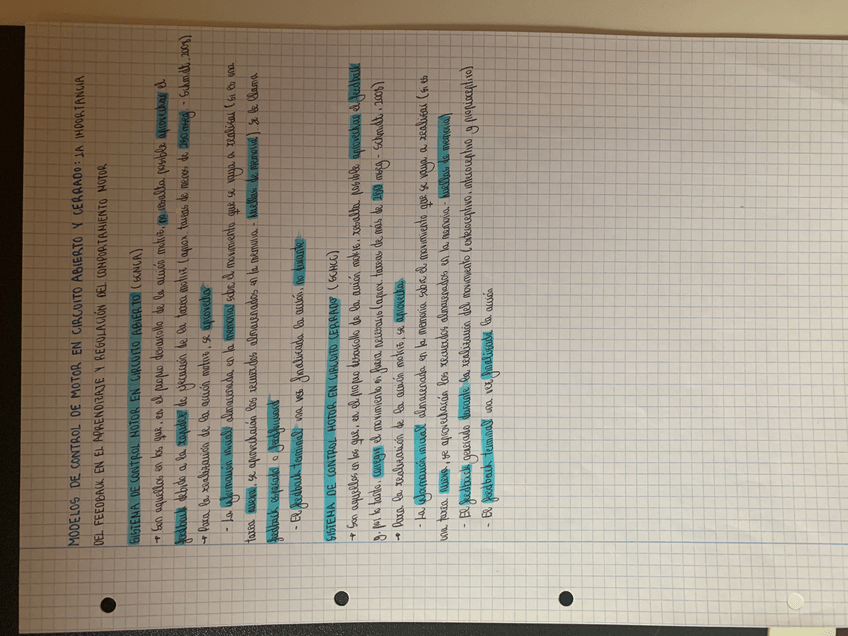 MODELOS DE CONTROL DE MOTOR EN CIRCUITO ABIERTO Y CERRADO: LA IMPORTANCIA
DEL FEEDBACK EN EL APRENDIZAJE Y REGULACIÓN DEL COMPORTAMIENTO MOTOR
SISTEMA DE CONTROL MOTOR EN CIRCUITO ABIERTO (SCMCA)
→ Son aquellos en los que, en el propio desarrollo de la acción motriz, no resulta posible aprovechar el
feedback debido a la rapidez de ejecución de la tarea motriz (aprox tareas de menos de 250 mseg - Schmidt, 2008)
→ Para la realización de la acción motriz, se aprovecha
- La información inicial almacenada en la memoria sobre el movimiento que se vaya a realizar (si es una
tarea nueva, se aprovechan los recuerdos almacenados en la memoria - huellas de memoria). Se le llama
feedback esperado o feedforward
- El feedback terminal una vez finalizada la acción, no durante
SISTEMA DE CONTROL MOTOR EN CIRCUITO CERRADO (SCMCC)
→ Son aquellos en los que, en el propio desarrollo de la acción motriz, resulta posible aprovechar el feedback
y, por lo tanto, corregir el movimiento si fuera necesario (aprox tareas de más de 250 mseg - Schmidt, 2008)
→ Para la realización de la acción motriz, se aprovecha
- La información inicial almacenada en la memoria sobre el movimiento que se vaya a realizar (si es
una tarea nueva, se aprovechan los recuerdos almacenados en la memoria - huellas de memoria)
- El feedback generado durante la realización del movimiento (exteroceptivo, interoceptivo y propioceptivo)
- El feedback terminal una vez finalizada la acción